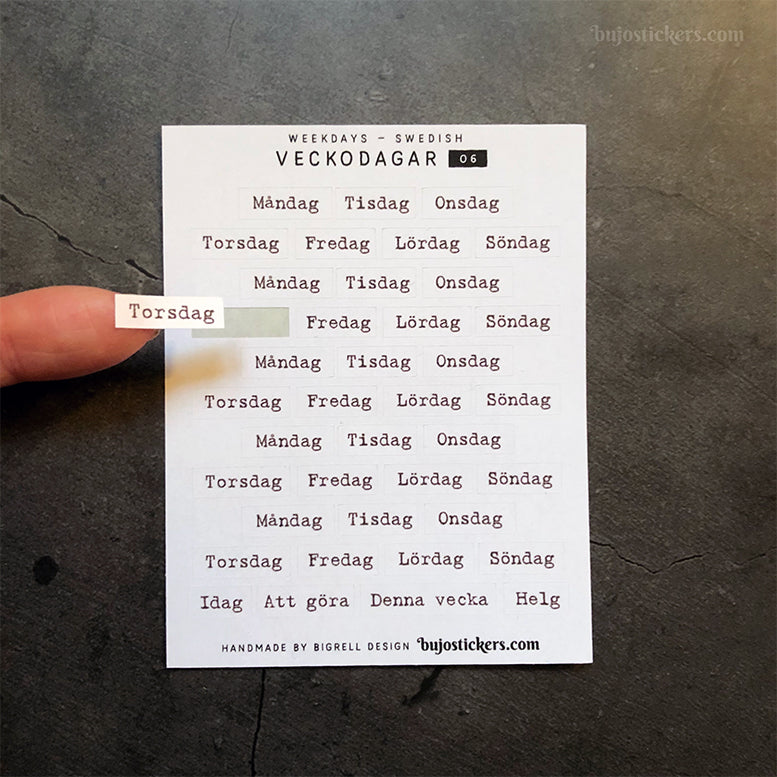 bujostickers.com
WEEKDAYS – SWEDISH
VECKODAGAR 06
Måndag Tisdag Onsdag
Torsdag Fredag Lördag Söndag
Måndag Tisdag Onsdag
Torsdag Fredag Lördag Söndag
Måndag Tisdag Onsdag
Torsdag Fredag Lördag Söndag
Måndag Tisdag Onsdag
Torsdag Fredag Lördag Söndag
Måndag Tisdag Onsdag
Torsdag Fredag Lördag Söndag
Idag Att göra Denna vecka Helg
HANDMADE BY BIGRELL DESIGN bujostickers.com